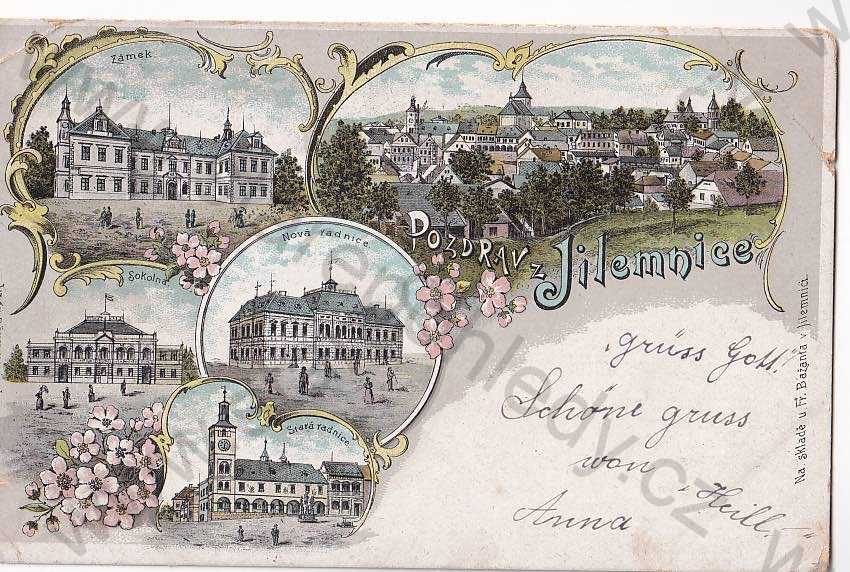 Zámek
Pozdrav z Jilemnice
Nová radnice.
Sokolna
Stará radnice.
„grüss Gott!"
Schöne gruss
von
„Heill.-"
Anna
Na skladě u Fr. Bažanta v Jilemnici.